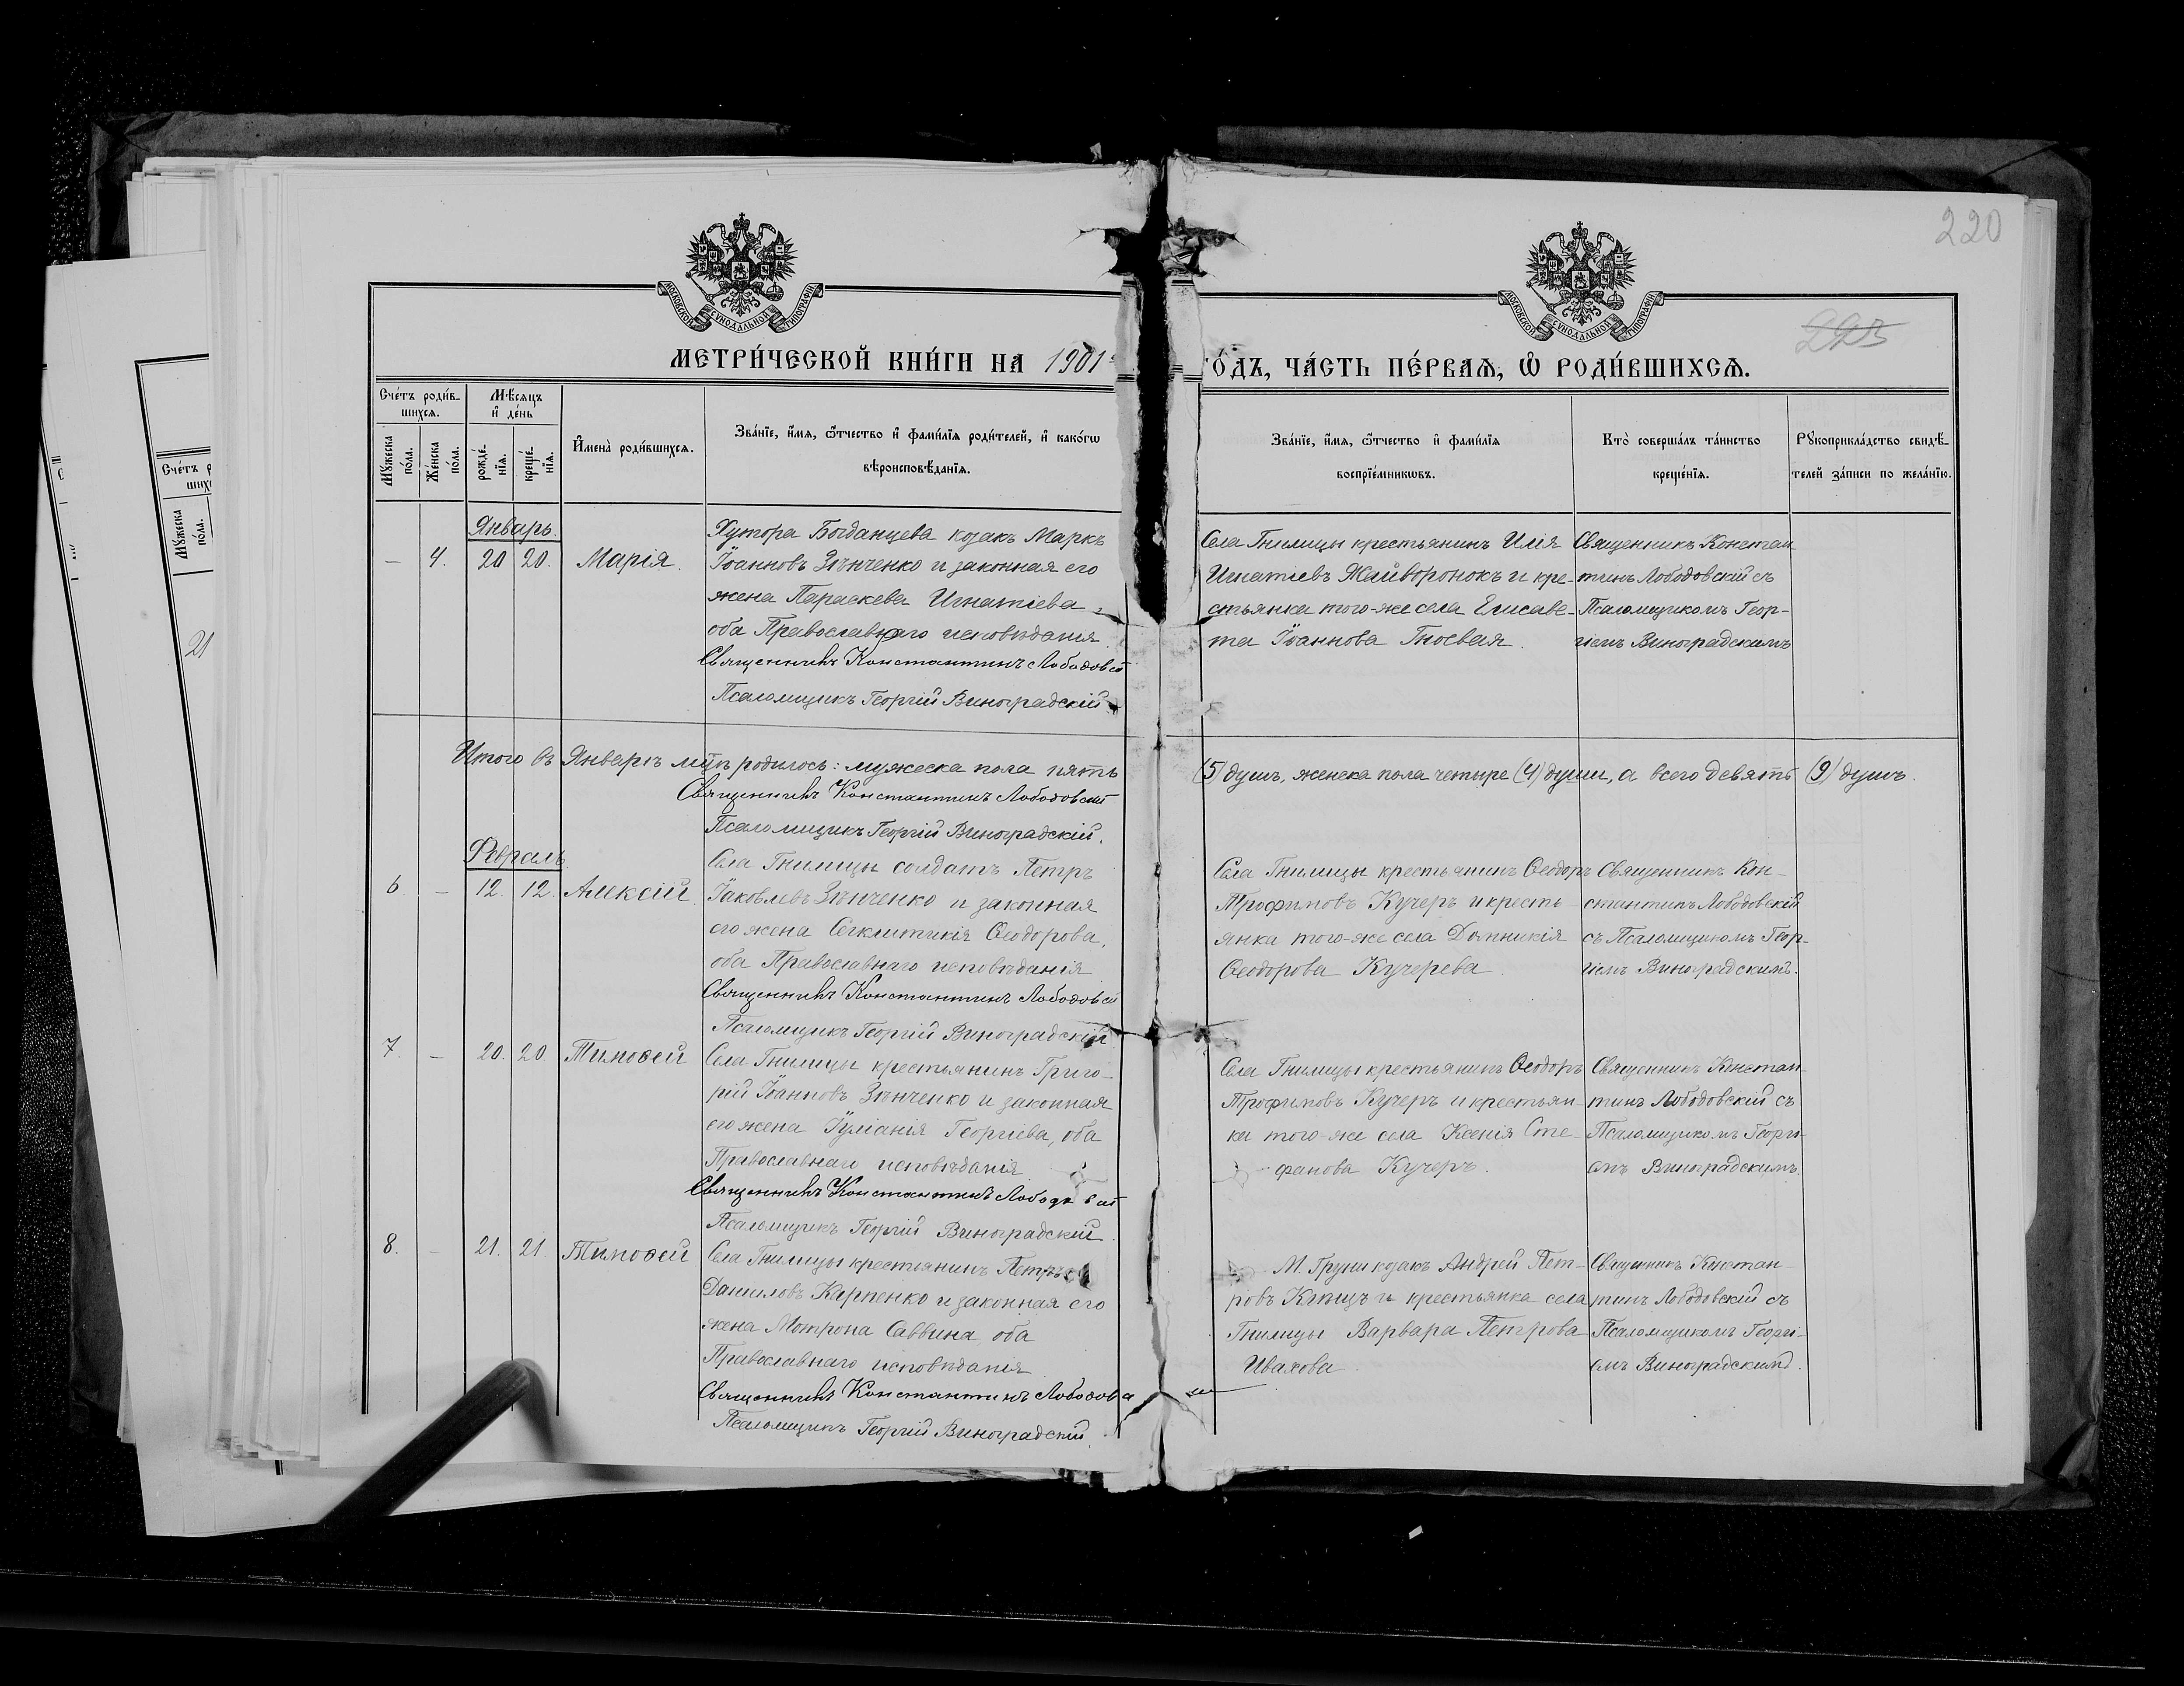 220
223
МОСКОВСКОЙ СѴНОДАЛЬНОЙ ТИПОГРАФІИ
МОСКОВСКОЙ СѴНОДАЛЬНОЙ ТИПОГРАФІИ
МЕТРИ́ЧЕСКОЙ КНИ́ГИ НА 1901
ГО́ДЪ, ЧА́СТЬ ПЕ́РВАѦ, Ѡ РОДИ́ВШИХСѦ.
Сче́тъ роди́в-
шихсѧ.
Мꙋ́жеска по́ла.
Же́нска по́ла.
Мѣ́сѧцъ
и҆ де́нь
рожде́-
нїѧ.
креще́-
нїѧ.
И҆мена̀ роди́вшихсѧ.
Зва́нїе, и҆́мѧ, ѻ҆́тчество и҆ фами́лїѧ роди́телей, и҆ како́гѡ
вѣроисповѣ́данїѧ.
Зва́нїе, и҆́мѧ, ѻ҆́тчество и҆ фами́лїѧ
воспрїе́мникѡвъ.
Кто̀ соверша́лъ та́инство
креще́нїѧ.
Рꙋкоприкла́дство свидѣ́-
телей за́писи по жела́нїю.
Январь.
— 4. 20 20. Марія.
Хутора Богданцева козакъ Маркъ
Іоанновъ Зѣнченко и законная его
жена Параскева Игнатіева,
оба Православнаго исповѣданія
Священникъ Константинъ Лободовскій
Псаломщикъ Георгій Виноградскій
Села Гнилицы крестьянинъ Илія
Игнатіевъ Жайворонокъ и кре-
стьянка того-же села Елисаве-
та Іоаннова Гноевая.
Священникъ Констан-
тинъ Лободовскій съ
Псаломщикомъ Геор-
гіемъ Виноградскимъ
Итого въ Январѣ мцѣ родилось: мужеска пола пять (5) душъ, женска пола четыре (4) души, а всего девять (9) душъ.
Священникъ Константинъ Лободовскій
Псаломщикъ Георгій Виноградскій.
Февраль.
6 — 12. 12. Алексій.
Села Гнилицы солдатъ Петръ
Іаковлевъ Зѣнченко и законная
его жена Сигклитикія Ѳеодорова,
оба Православнаго исповѣданія
Священникъ Константинъ Лободовскій
Псаломщикъ Георгій Виноградскій
Села Гнилицы крестьянинъ Ѳеодоръ
Трофимовъ Кучеръ и кресть-
янка того-же села Домникія
Ѳеодорова Кучерева.
Священникъ Кон-
стантинъ Лободовскій
съ Псаломщикомъ Геор-
гіемъ Виноградскимъ.
7. — 20. 20 Тимоѳей
Села Гнилицы крестьянинъ Григо-
рій Іоанновъ Зѣнченко и законная
его жена Іуліанія Георгіева, оба
Православнаго исповѣданія
Священникъ Константинъ Лободовскій
Псаломщикъ Георгій Виноградскій
Села Гнилицы крестьянинъ Ѳеодоръ
Трофимовъ Кучеръ и крестьян-
ка того-же села Ксенія Сте-
фанова Кучеръ.
Священникъ Констан-
тинъ Лободовскій съ
Псаломщикомъ Георгі-
емъ Виноградскимъ.
8. — 21. 21. Тимоѳей
Села Гнилицы крестьянинъ Петръ
Даниловъ Карпенко и законная его
жена Мотрона Саввина оба
Православнаго исповѣданія
Священникъ Константинъ Лободовс
Псаломщикъ Георгій Виноградскій.
М. Груни козакъ Андрей Пет-
ровъ и крестьянка села
Гнилицы Варвара Петрова
Ивахова.
Священникъ Констан-
тинъ Лободовскій съ
Псаломщикомъ Георгі-
емъ Виноградскимъ.
Сче́тъ р
шихс
Мꙋ́жеска
по́ла.
21